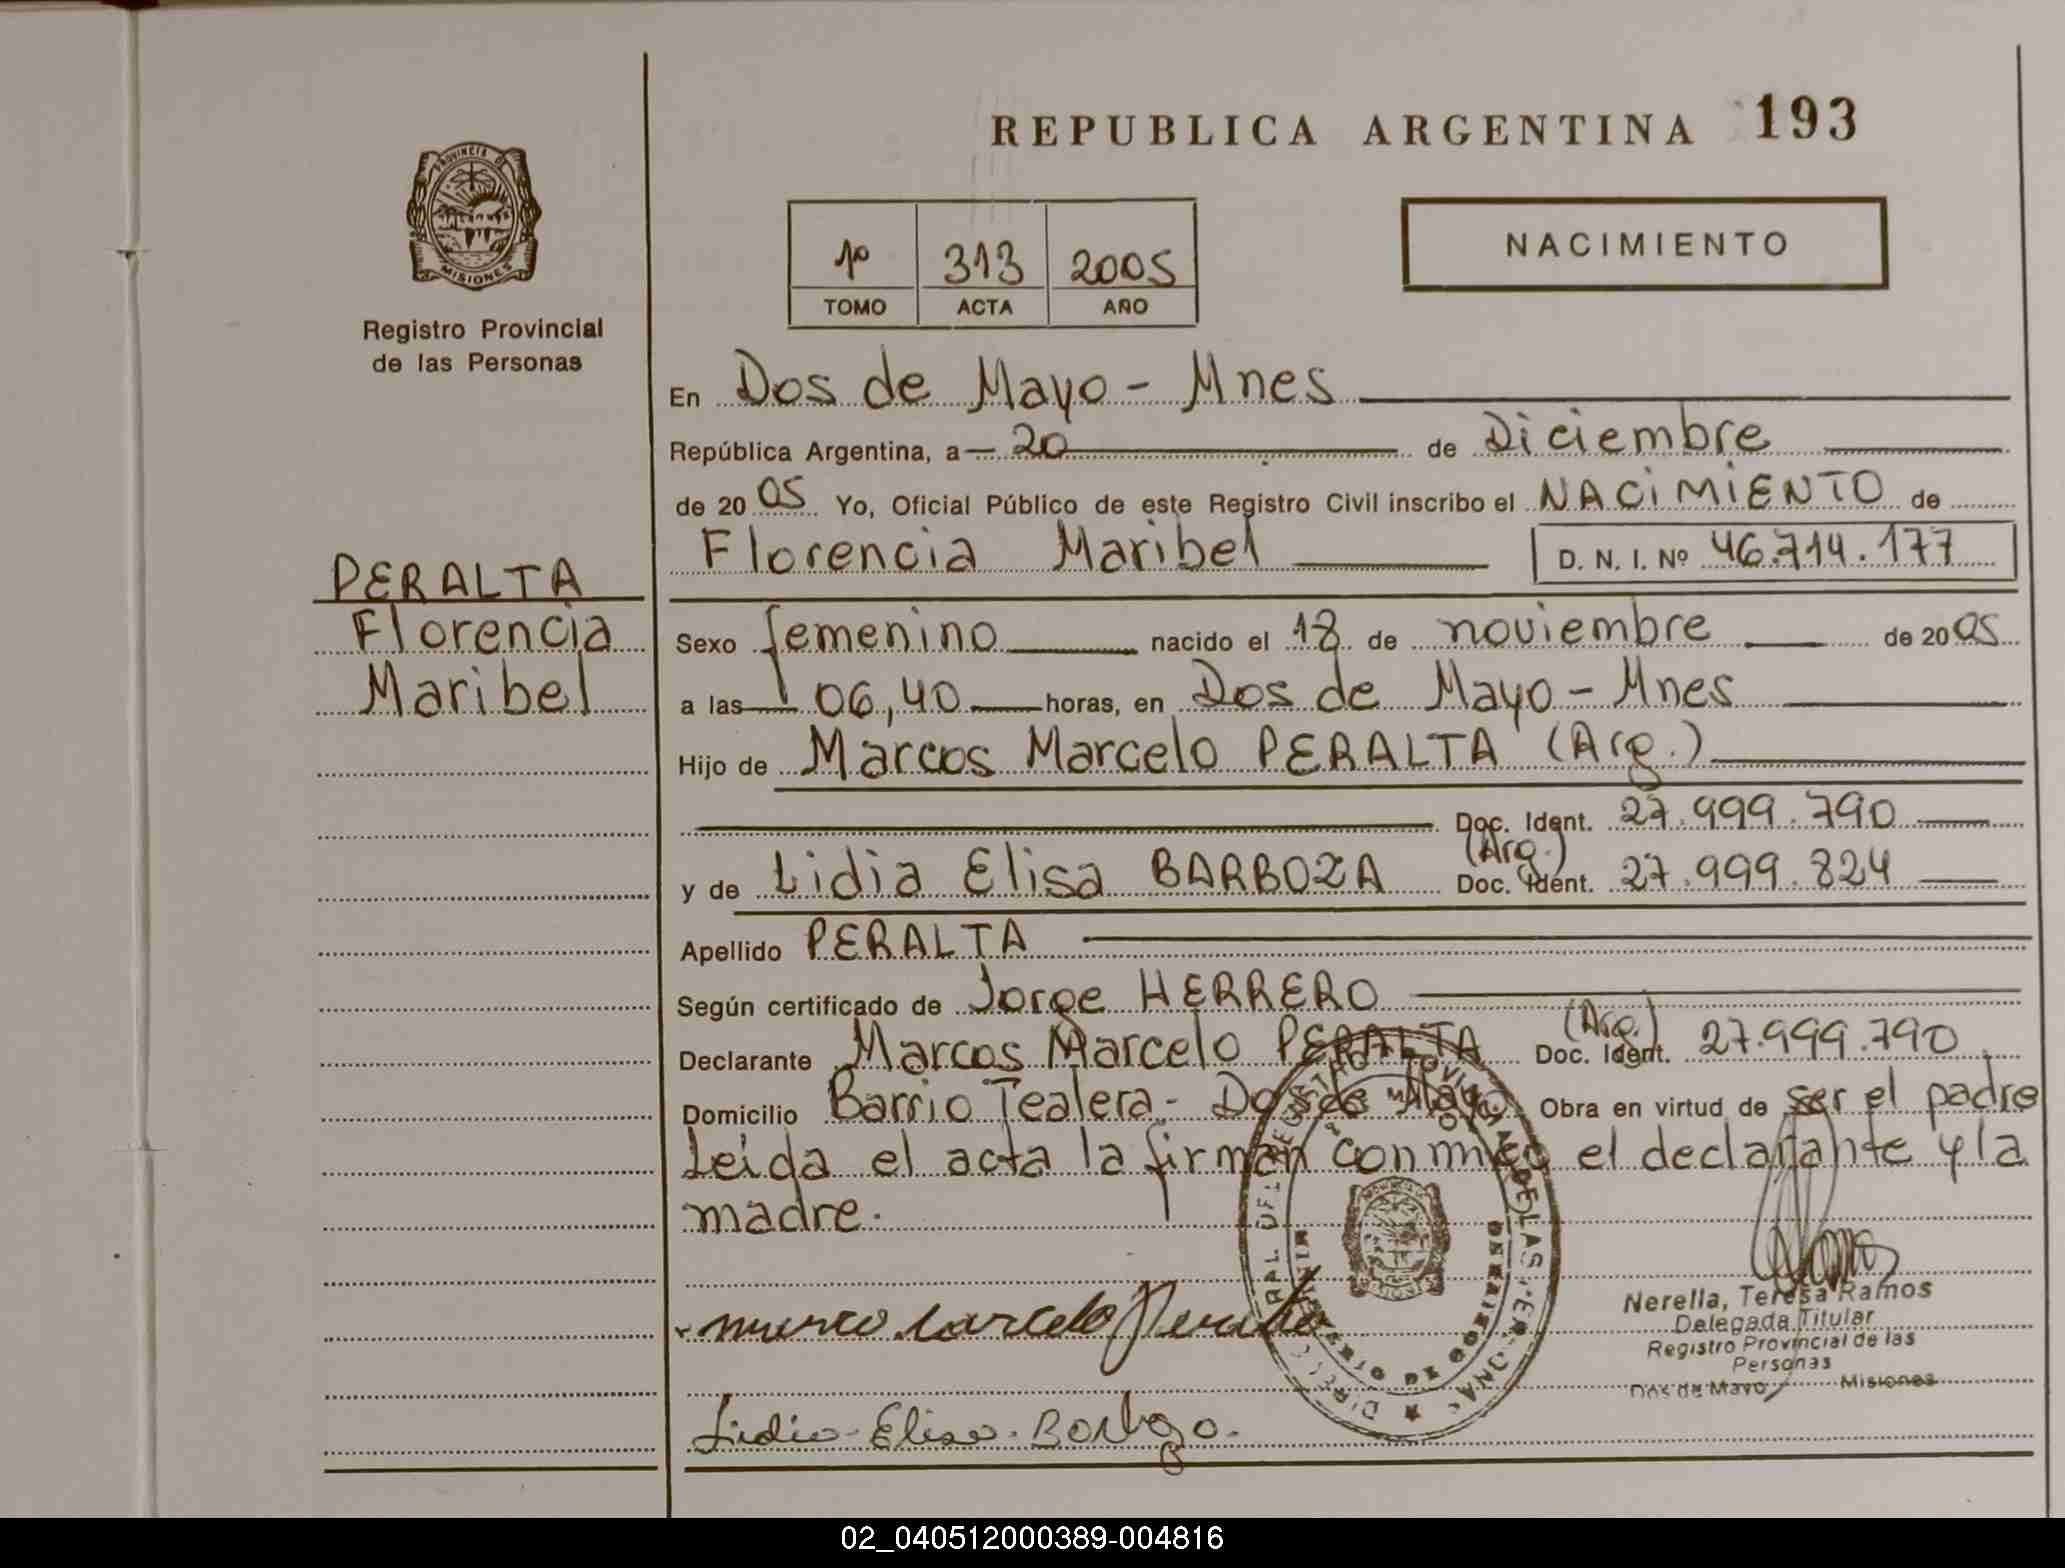 REPUBLICA ARGENTINA 193
PROVINCIA DE
MISIONES
Registro Provincial
de las Personas
1º 313 2005
TOMO ACTA AÑO
NACIMIENTO
En Dos de Mayo - Mnes
República Argentina, a 20 de Diciembre
de 2005 Yo, Oficial Público de este Registro Civil inscribo el NACIMIENTO de
Florencia Maribel D. N. I. Nº 46.714.177
PERALTA
Florencia
Maribel
Sexo femenino nacido el 18 de noviembre de 2005
a las 06,40 horas, en Dos de Mayo - Mnes
Hijo de Marcos Marcelo PERALTA (Arg.)
Doc. Ident. 27.999.790
y de Lidia Elisa BARBOZA (Arg.) Doc. Ident. 27.999.824
Apellido PERALTA
Según certificado de Jorge HERRERO
Declarante Marcos Marcelo PERALTA (Arg.) Doc. Ident. 27.999.790
Domicilio Barrio Tealera - Dos de Mayo Obra en virtud de ser el padre
Leida el acta la firman conmigo el declarante y la
madre.
Nerella, Teresa Ramos
Delegada Titular
Registro Provincial de las
Personas
Dos de Mayo Misiones
Lidia Elisa Borboza
02_040512000389-004816